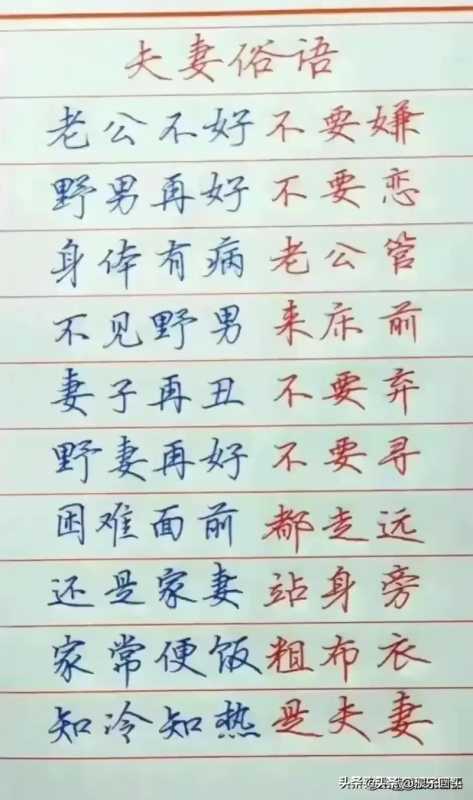 夫妻俗语
老公不好 不要嫌
野男再好 不要恋
身体有病 老公管
不见野男 来床前
妻子再丑 不要弃
野妻再好 不要寻
困难面前 都走远
还是家妻 站身旁
家常便饭 粗布衣
知冷知热 是夫妻